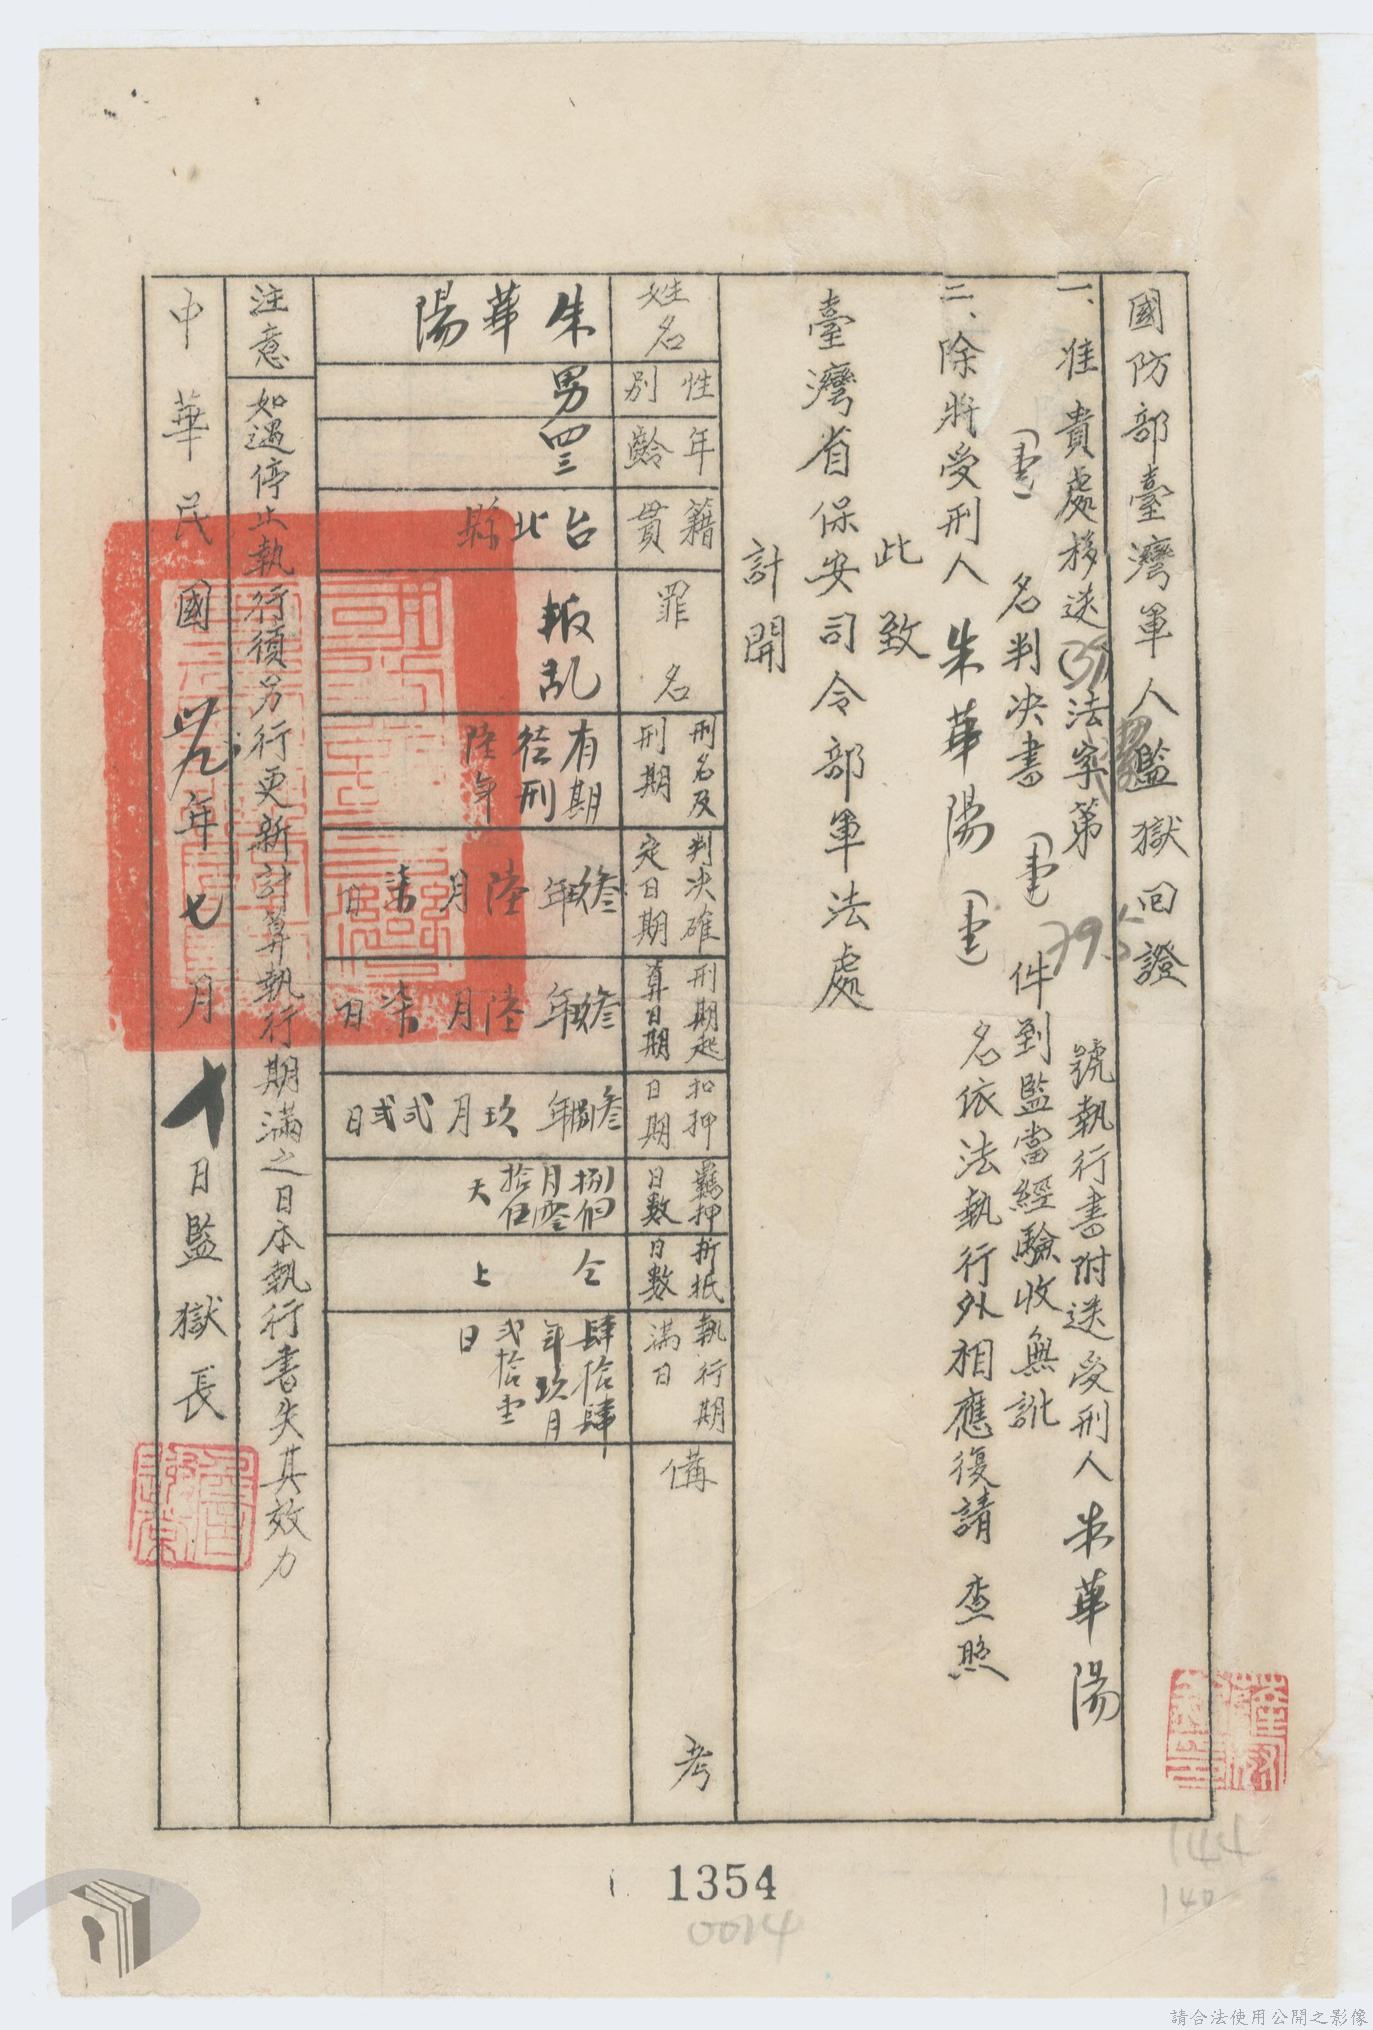 國防部臺灣軍人監獄回證
一、准 貴處移送(39)法字第795號執行書附送受刑人朱華陽
(壹)名判決書(壹)件到監當經驗收無訛
二、除將受刑人朱華陽(壹)名依法執行外相應復請 查照
此致
臺灣省保安司令部軍法處
計開
姓名
性別
年齡
籍貫
罪名
刑名及刑期
判決確定日期
刑期起算日期
扣押日期
羈押日數
折抵日數
執行期滿日
備考
朱華陽
男
四三
台北縣
叛乱
有期徒刑陸年
叁玖年陸月柒日
叁玖年陸月柒日
叁捌年玖月弍弍日
捌個月零拾伍天
仝上
肆拾肆年玖月弍拾壹日
注意
如遇停止執行須另行更新計算執行期滿之日本執行書失其效力
中華民國卅九年七月十日監獄長
144
140
1354
0014
請合法使用公開之影像